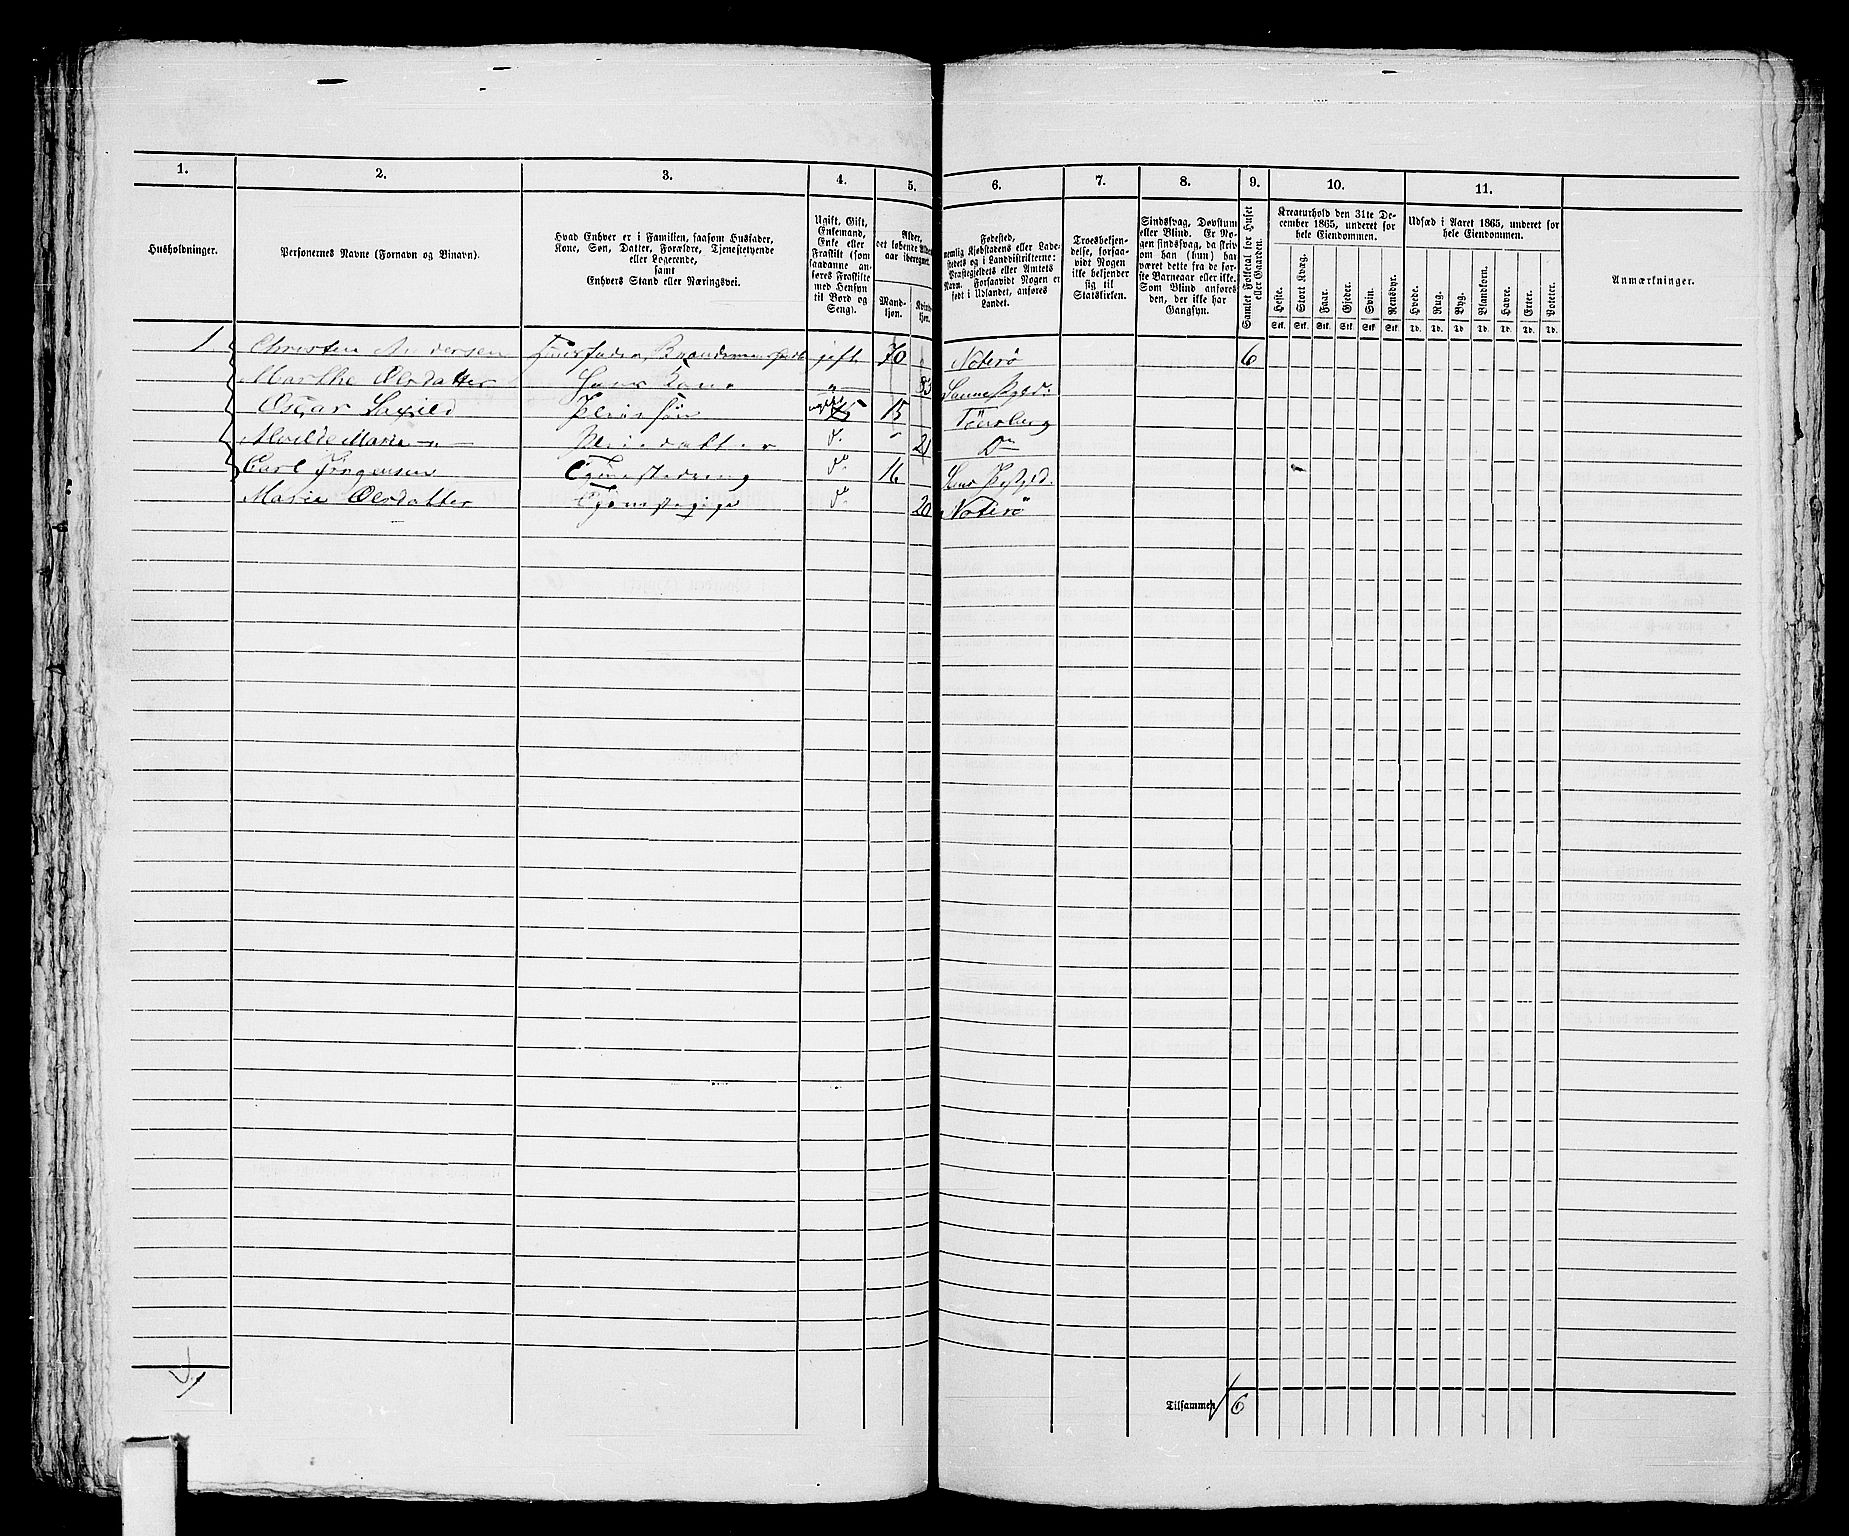 1.
2.
3.
4.
5.
6.
7.
8.
9.
10.
11.
Husholdninger.
Personernes Navne (Fornavn og Binavn).
Hvad Enhver er i Familien, saasom Husfader,
Kone, Søn, Datter, Forældre, Tjenestetyende
eller Logerende,
samt
Enhvers Stand eller Næringsvei.
Ugift, Gift,
Enkemand,
Enke eller
Fraskilt (som
saadanne an-
føres Fraskilte
med Hensyn
til Bord og
Seng).
Alder,
det løbende Alders-
aar iberegnet.
Mand-
kjøn.
Kvinde-
kjøn.
Fødested,
nemlig Kjøbstadens eller Lade-
stedets og i Landdistrikterne:
Præstegjeldets eller Amtets
Navn. Forsaavidt Nogen er
født i Udlandet, anføres
Landet.
Troesbekjen-
delse, forsaa-
vidt Nogen
ikke bekjender
sig til
Statskirken.
Sindssvag, Døvstum
eller Blind. Er No-
gen sindssvag, da skriv
om han (hun) har
været dette fra de før-
ste Barneaar eller ikke.
Som Blind anføres
den, der ikke har
Gangsyn.
Samlet Folketal for Huset
eller Gaarden.
Kreaturhold den 31te De-
cember 1865, underet for
hele Eiendommen.
Udsæd i Aaret 1865, underet for
hele Eiendommen.
Anmærkninger.
Heste. Stort Kvæg. Faar. Gjeder. Svin. Rensdyr. Hvede. Rug. Byg. Blandkorn. Havre. Erter. Poteter.
Stk. Stk. Stk. Stk. Stk. Stk. Td. Td. Td. Td. Td. Td. Td.
1 Christen Andersen Husfader, gift 70 Noterø 6
Marthe Olsdatter Hans Kone " 53
Oscar Pleiesøn ugift 15 Tønsberg
Marie " Pleiedatter do 21 Do
Carl Jörgensen do 16
Marie Olsdatter do 20 Noterø
Tilsammen 6